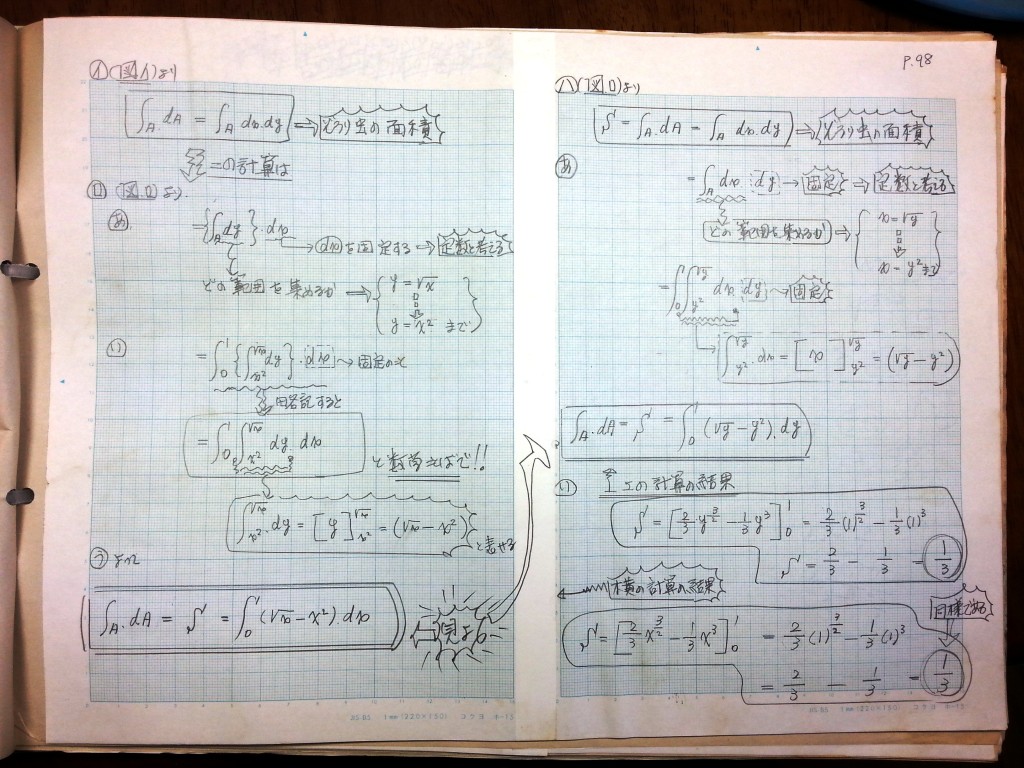 イ (図イ)より
∫A.dA = ∫A dx.dy ⇒ くり出の面積
この計算は
ロ (図ロ)より.
あ
= {∫A dy}・dx
→ dxを固定する ⇒ 定数と考える
どの範囲を集めるか ⇒ { y = √x
y = x² まで }
い
= ∫0^1 {∫x²^√x dy}・dx → 固定の
略記すると
= ∫0^1 ∫x²^√x dy dx
と数学ことばで!!
∫x²^√x.dy = [y]x²^√x = (√x − x²)
と表せる
う よって
∫A.dA = S = ∫0^1 (√x − x²).dx
見よ
P.98
ハ (図ロ)より
S = ∫A.dA = ∫A dx.dy ⇒ の面積
あ
= ∫A dx dy → 固定 ⇒ 定数と考える
どの範囲を集めるか ⇒ { x = √y
x = y² まで }
= ∫0^1 ∫y²^√y dx dy → 固定
∫y²^√y.dx = [x]y²^√y = (√y − y²)
∫A.dA = S = ∫0^1 (√y − y²).dy
い
上の計算の結果
S = [2/3 y^3/2 − 1/3 y³]0^1 = 2/3 (1)^3/2 − 1/3 (1)³
S = 2/3 − 1/3 = 1/3
横の計算の結果
同様である
S = [2/3 x^3/2 − 1/3 x³]0^1 = 2/3 (1)^3/2 − 1/3 (1)³
= 2/3 − 1/3 = 1/3
1㎜(220×150) コクヨ
1㎜(220×150) コクヨ